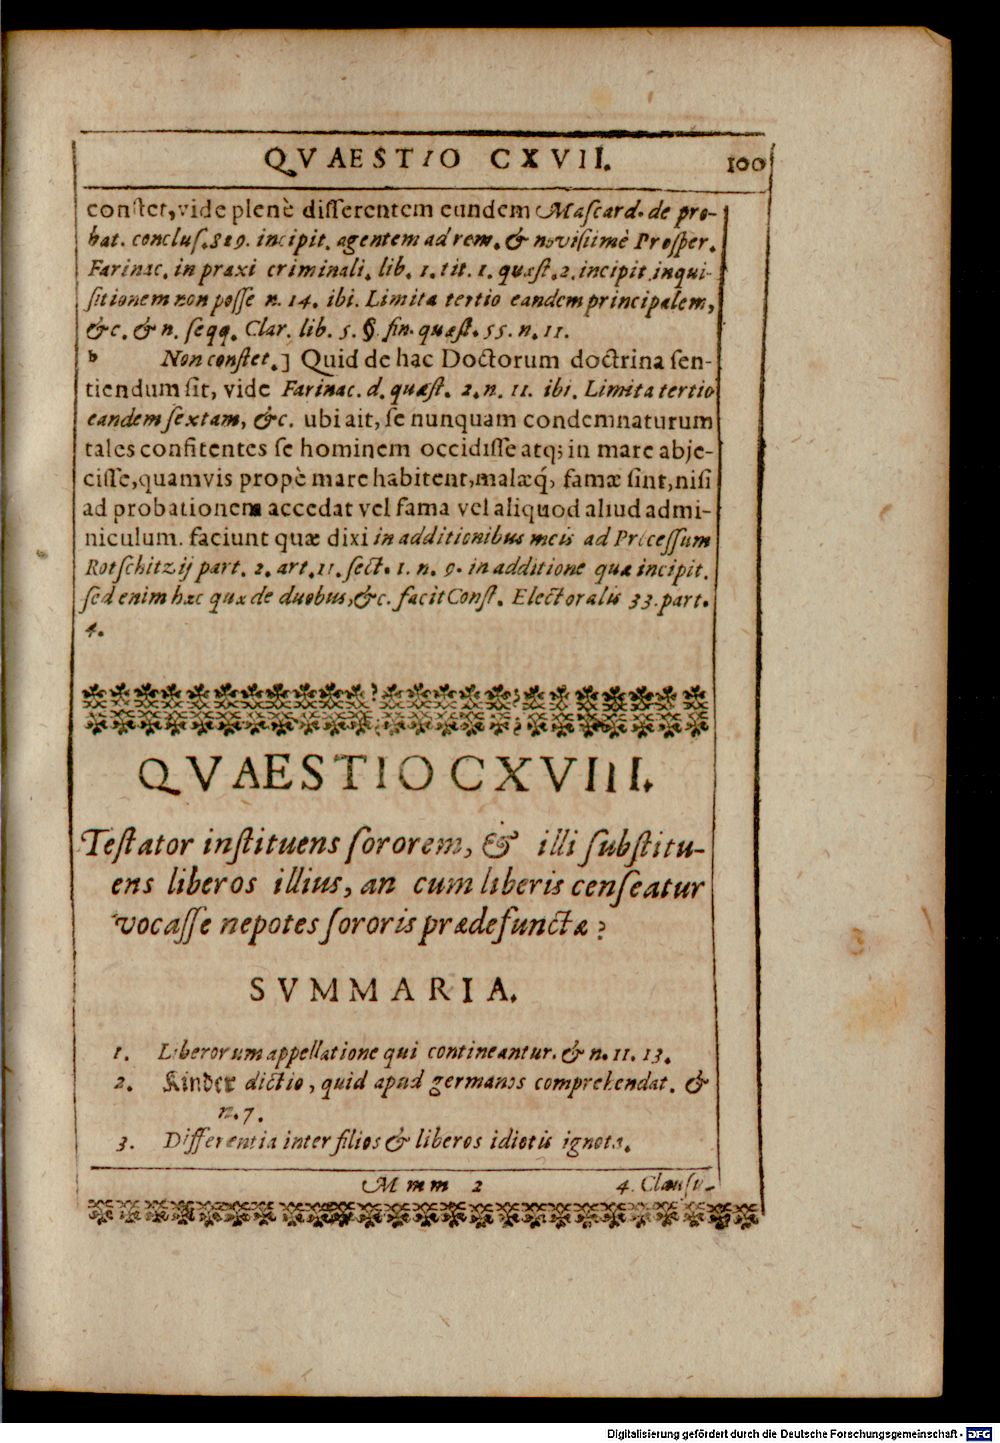 QVAESTIO CXVII. 100
constet, vide plenè disserentem eundem Mascard. de pro-
bat. conclus. 819. incipit. agentem ad rem. & novissimè Prosper.
Farinac. in praxi criminali. lib. 1. tit. 1. quæst. 2. incipit inqui-
sitionem non posse n. 14. ibi. Limita tertio eandem principalem,
&c. & n. seqq. Clar. lib. 5. §. fin. quæst. 55. n. 11.
b Non constet.] Quid de hac Doctorum doctrina sen-
tiendum sit, vide Farinac. d. quæst. 2. n. 11. ibi. Limita tertio
eandem sextam, &c. ubi ait, se nunquam condemnaturum
tales confitentes se hominem occidisse atq; in mare abje-
cisse, quamvis propè mare habitent, malæq́, famæ sint, nisi
ad probationem accedat vel fama vel aliquod aliud admi-
niculum. faciunt quæ dixi in additionibus meis ad Processum
Rotschitzij part. 2. art. 11. sect. 1. n. 9. in additione quæ incipit.
sed enim hæc quæ de duobus, &c. facit Const. Electoralis 33. part.
4.
QVAESTIO CXVIII.
Testator instituens sororem, & illi substitu-
ens liberos illius, an cum liberis censeatur
vocasse nepotes sororis prædefunctæ?
SVMMARIA.
1. Liberorum appellatione qui contineantur. & n. 11. 13.
2. Kinder dictio, quid apud germanos comprehendat. &
n. 7.
3. Differentia inter filios & liberos idiotis ignota.
Mmm 2 4. Clausu-
Digitalisierung gefördert durch die Deutsche Forschungsgemeinschaft - DFG